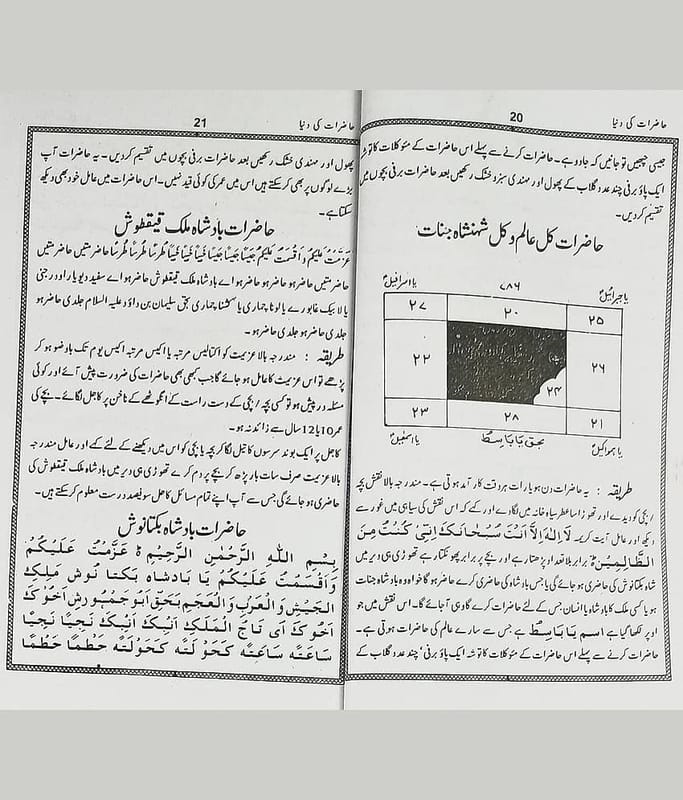 حاضرات کی دنیا
20
جیسی چبھیں تو جانیں کہ جادو ہے۔ حاضرات کرنے سے پہلے اس حاضرات کے مؤکلات کا توشہ
ایک پاؤ برفی چند عدد گلاب کے پھول اور مہندی سبز و خشک رکھیں بعد حاضرات برفی بچوں میں
تقسیم کر دیں۔
حاضرات کل عالم و کل شہنشاہ جنات
یا جبرائیل
۷۸۶
یا اسرافیل
۲۵
۲۰
۲۷
۲۶
۲۴
۲۲
۲۱
۲۸
۲۳
بحق یا باسط
طریقہ : یہ حاضرات دن ہو یا رات ہر وقت کار آمد ہوتی ہے۔ مندرجہ بالا نقش بچہ
/ بچی کو دیدے اور تھوڑا سا عطر سیاہ خانہ میں لگا دے اور کہے کہ اس نقش کی سیاہی میں غور سے
دیکھ اور عامل آیت کریمہ لَا اِلٰہَ اِلَّا اَنْتَ سُبْحَانَکَ اِنِّیْ کُنْتُ مِنَ
الظَّالِمِیْنَ برابر بلا تعداد پڑھتا رہے اور بچے پر برابر پھونکتا رہے تھوڑی ہی دیر میں
شاہ بکتانوش کی حاضری ہو جائے گی یا جس بادشاہ کی حاضری کرے حاضر ہو گا خواہ وہ بادشاہ جنات
ہو یا کسی ملک کا بادشاہ یا انسان جس کے لئے حاضرات کرے گا وہی آ جائے گا۔ اس نقش میں جو
اوپر لکھا گیا ہے اسم یَا بَاسِطُ ہے جس سے سارے عالم کی حاضرات ہوتی ہے۔
حاضرات کرنے سے پہلے اس حاضرات کے مؤکلات کا توشہ ایک پاؤ برفی' چند عدد گلاب کے
حاضرات کی دنیا
21
پھول اور مہندی خشک رکھیں بعد حاضرات برفی بچوں میں تقسیم کر دیں۔ یہ حاضرات آپ
بڑے لوگوں پر بھی کر سکتے ہیں اس میں عمر کی کوئی قید نہیں۔ اس حاضرات میں عامل خود بھی دیکھ
سکتا ہے۔
حاضرات بادشاہ ملک قیقطوش
عَزَمْتُ عَلَیْکُمْ وَاَقْسَمْتُ عَلَیْکُمْ حاضر تیں حاضر تیں
حاضر تیں حاضر ہو حاضر ہو اے بادشاہ ملک قیقطوش حاضر ہو اے سفید دیو یار اور جنی
یا لا بیک بحق سلیمان بن داؤد علیہ السلام جلدی حاضر ہو
جلدی حاضر ہو جلدی حاضر ہو۔
طریقہ : مندرجہ بالا عزیمت کو اکتالیس مرتبہ یا اکیس مرتبہ اکیس یوم تک باوضو ہو کر
پڑھے تو اس عزیمت کا عامل ہو جائے گا جب کبھی بھی حاضرات کی ضرورت پیش آئے اور کوئی
مسئلہ درپیش ہو تو کسی بچہ / بچی کے دست راست کے انگوٹھے کے ناخن پر کاجل لگائے۔ بچے کی
عمر 10 یا 12 سال سے زائد نہ ہو۔
کاجل پر ایک بوند سرسوں کا تیل لگا کر بچہ یا بچی کو اس میں دیکھنے کے لئے کہے اور عامل مندرجہ
بالا عزیمت صرف سات بار پڑھ کر بچے پر دم کرے تھوڑی ہی دیر میں بادشاہ ملک قیقطوش کی
حاضری ہو جائے گی جس سے آپ اپنے تمام مسائل کا حل سو فیصد درست معلوم کر سکتے ہیں۔
حاضرات بادشاہ بکتانوش
بِسْمِ اللّٰهِ الرَّحْمٰنِ الرَّحِيْمِ عَزَّمْتُ عَلَيْكُمْ
وَاَقْسَمْتُ عَلَيْكُمْ يَا بَادشاه بكتا نوش مَلِكِ
الْجَيْشِ وَالْعَرَبِ وَالْعَجَمِ بَحَقِّ اَبُوْجمبورش اَخُوْكَ
اَخُوْكَ اَي تَاجُ الْمَلَكِ اَتِيْكَ اَتِيْكَ نَجِيًّا نَجِيًّا
سَاعَتَهْ سَاعَتِهْ كَحَوْلَتَهْ كَحَوْلَتَهْ حَطْمًا حَطْمًا